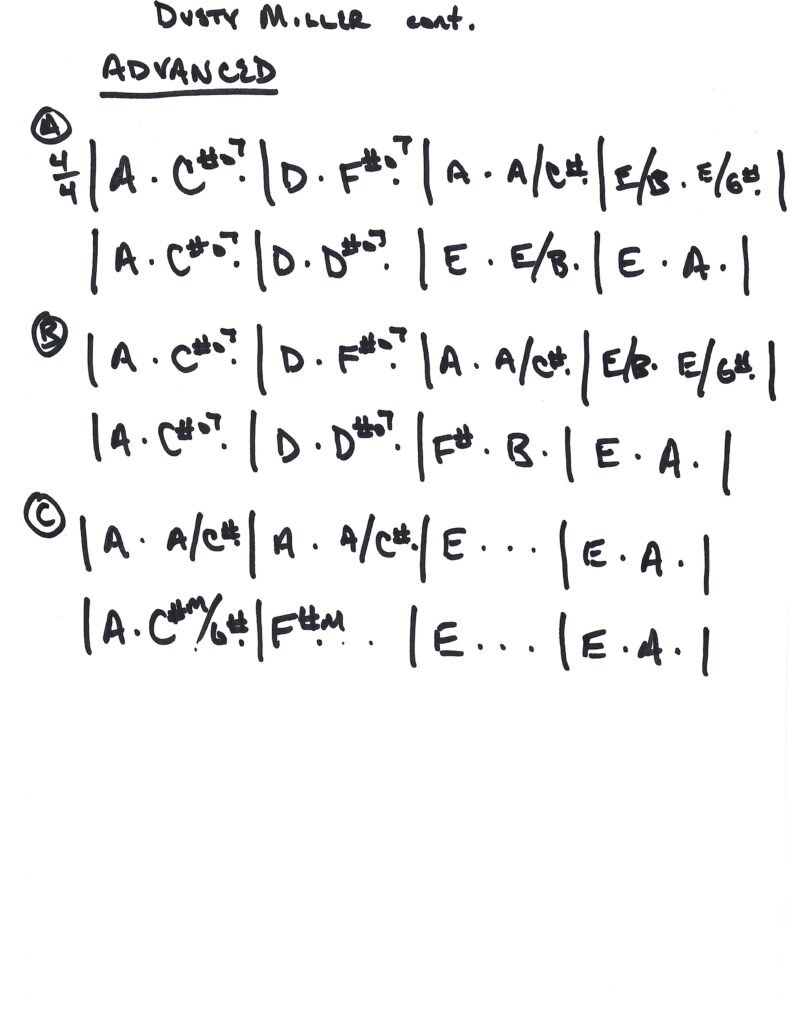 DUSTY MILLER cont.
ADVANCED
A
4/4 | A . C#o7 . | D . F#o7 . | A . A/C# . | E/B . E/G# . |
| A . C#o7 . | D . D#o7 . | E . E/B . | E . A . |
B
| A . C#o7 . | D . F#o7 . | A . A/C# . | E/B . E/G# . |
| A . C#o7 . | D . D#o7 . | F# . B . | E . A . |
C
| A . A/C# . | A . A/C# . | E . . . | E . A . |
| A . C#M/G# . | F#M . . . | E . . . | E . A . |